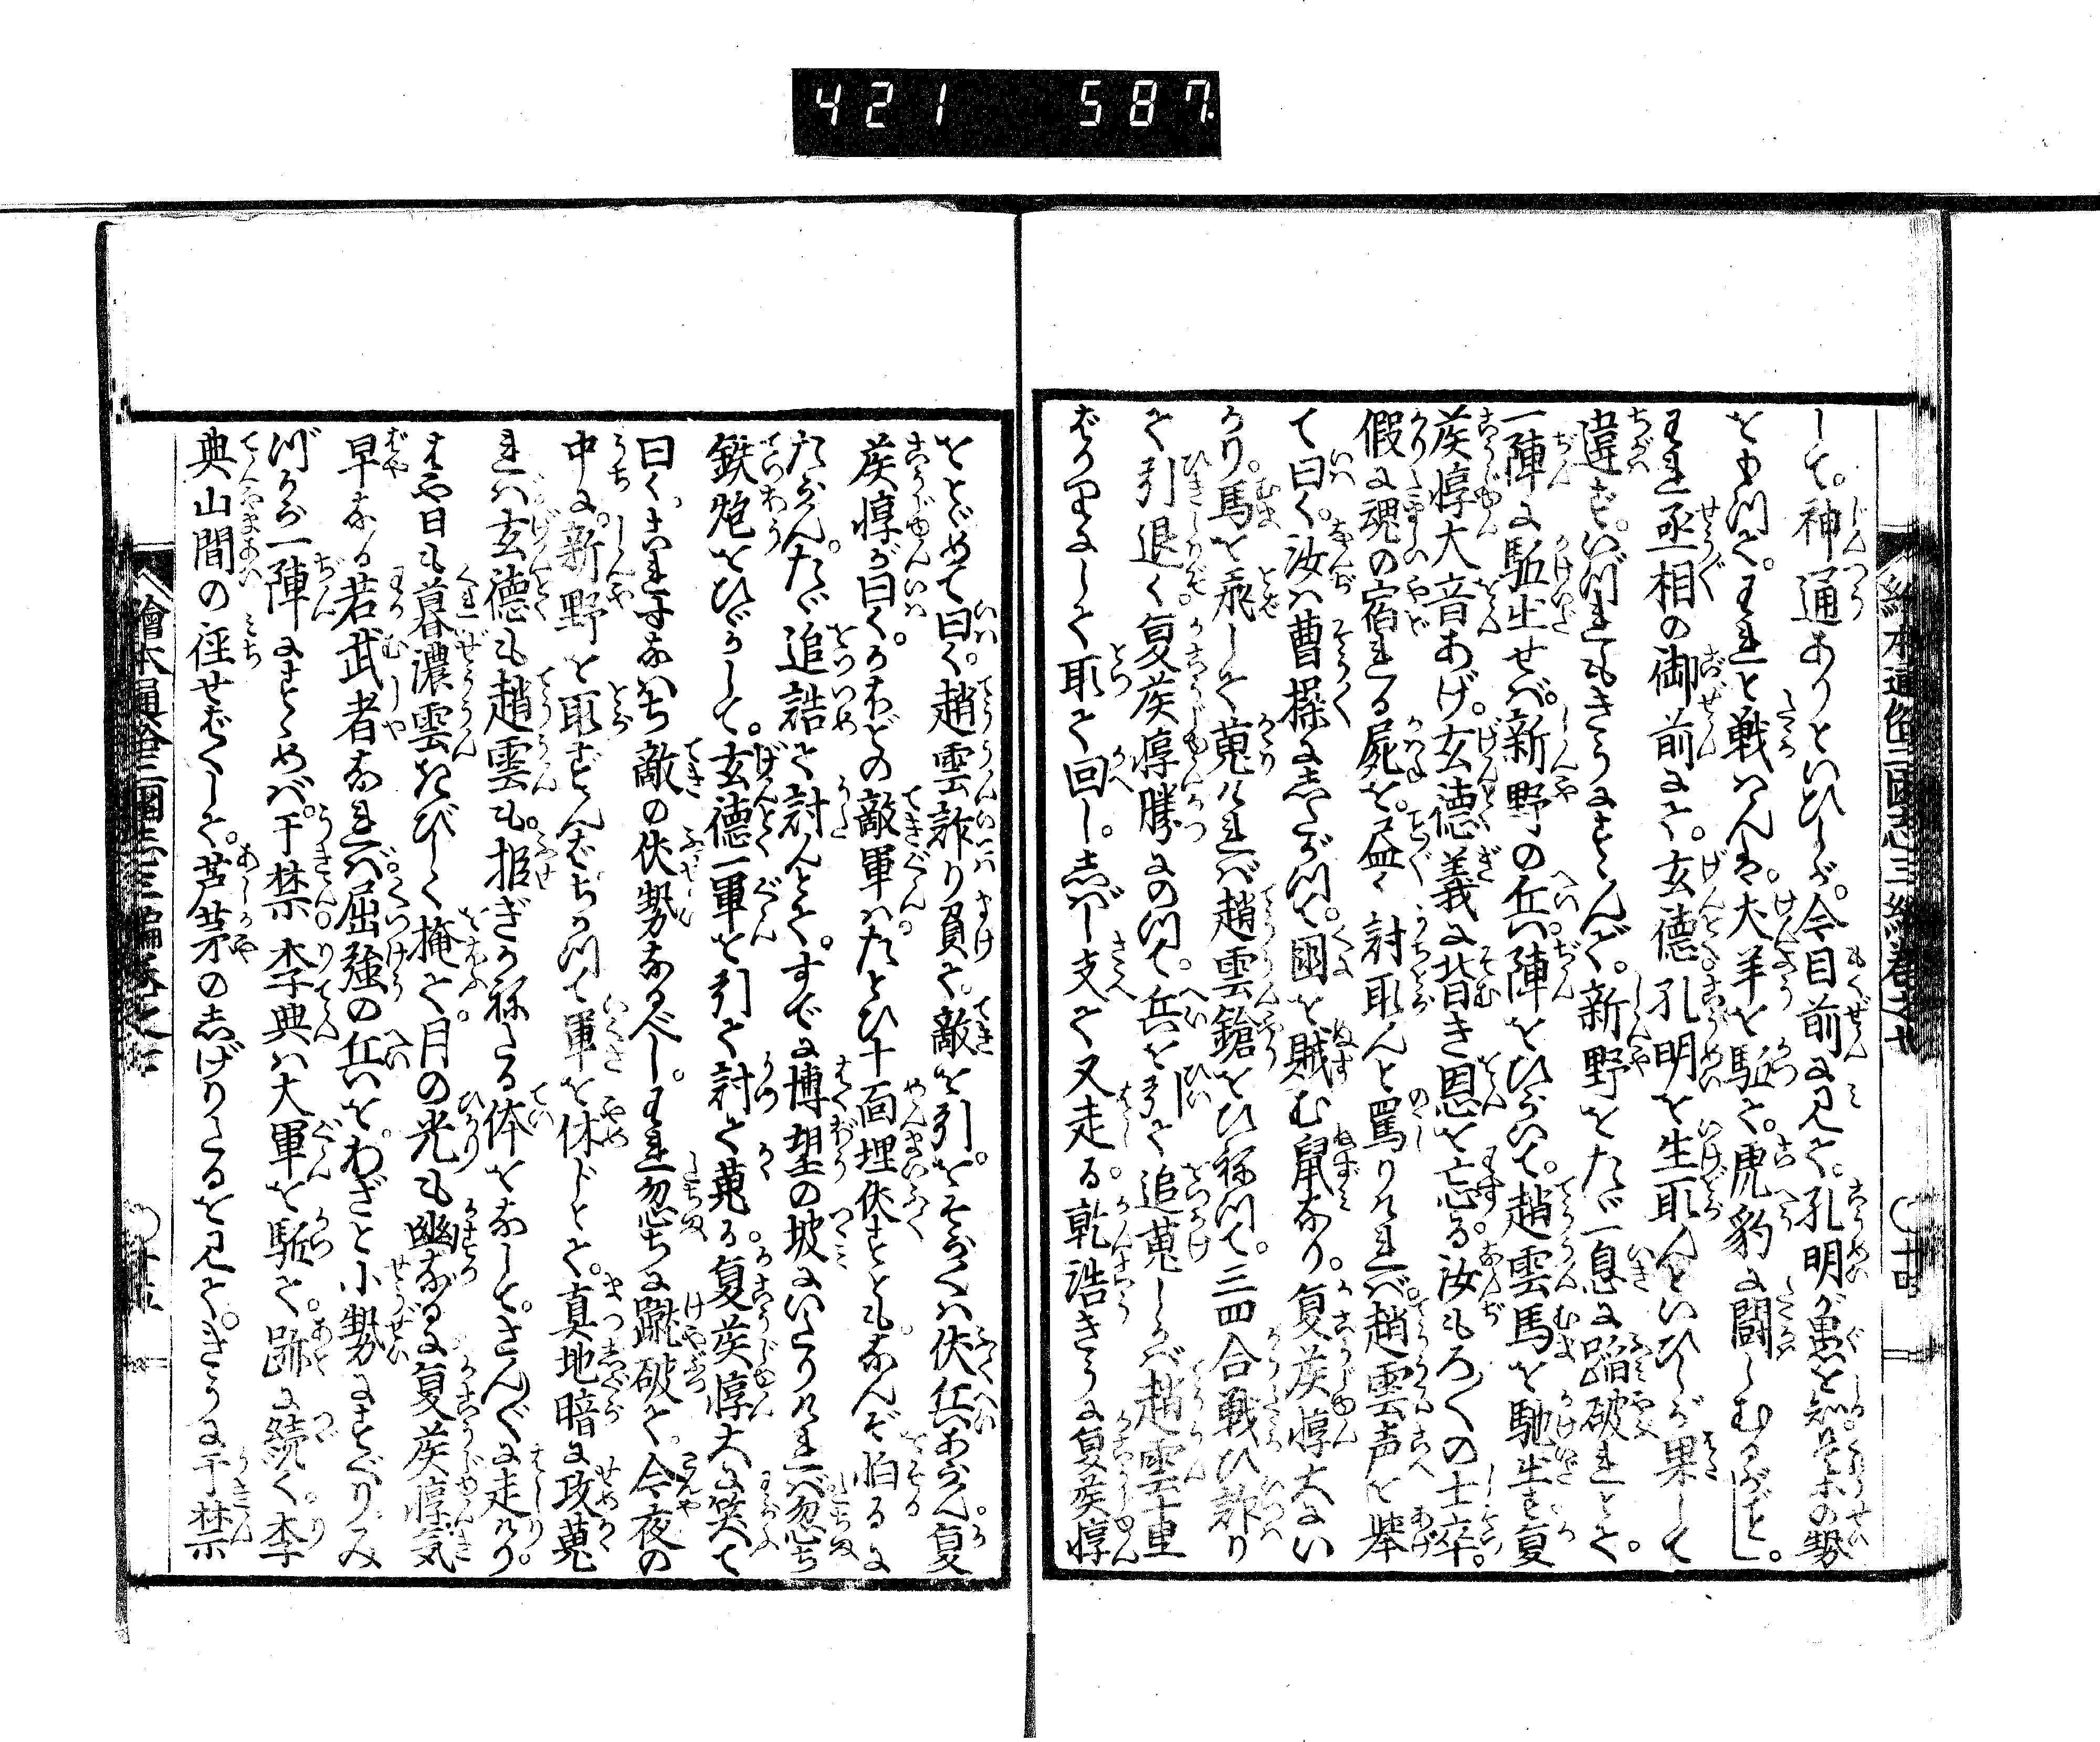 421 587
絵本通俗三国志三編巻之七
十四
して。神通ありといひしが。今目前に見て。孔明が愚を知。是木の勢
を以て。われと戦はんは。犬羊を駈て。虎豹に闘しむるがごとし。
われ丞相の御前にて。玄徳孔明を生取んといひしが果して
違ず。いづれもきうにすゝんで。新野をたゞ一息に踏破れとて。
一陣に駈出せば。新野の兵。陣をひらいて。趙雲馬を馳出す夏
侯惇大音あげ。玄徳義に背き恩を忘る汝もろ〳〵の士卒。
假に魂の宿れる屍を。尽く討取んと罵りければ。趙雲声を挙
て曰く。汝は曹操にしたがつて。国を賊む鼠なり。夏侯惇大にい
かり。馬を飛して蒐ければ趙雲鎗をひねつて。三四合戦ひ詐り
て引退く夏侯惇勝にのつて。兵を引て追蒐しかば趙雲十里
ばかりにして取て回し。しばし支て又走る。乾浩きうに夏侯惇
をとゞめて曰く。趙雲詐り負て。敵を引。をそらくは伏兵あらん。夏
侯惇が曰く。かほどの敵軍は。たとひ十面埋伏すとも。なんぞ怕るに
たらん。たゞ追詰て討んとて。すでに博望の坡にいたりければ忽ち
鉄炮をひゞかして。玄徳一軍を引て討て蒐る。夏侯惇大に笑て
曰く。これすなはち敵の伏勢なるべし。われ忽ちに蹴破て。今夜の
中に。新野を取ずんばちかつて軍を休じとて。真地暗に攻蒐
れば玄徳も趙雲も。拒ぎかねたる体をなして。さん〴〵に走けり。
はや日も暮濃雲たびしく掩て。月の光も幽なるに夏侯惇気
早なる若武者なれば。屈強の兵を。わざと小勢にすぐりみ
づから一陣にすゝめば。于禁李典は大軍を駈て。跡に続く。李
典山間の径せばくして。芦茅のしげりたるを見て。きうに于禁
繪本通俗三國志三編巻之七